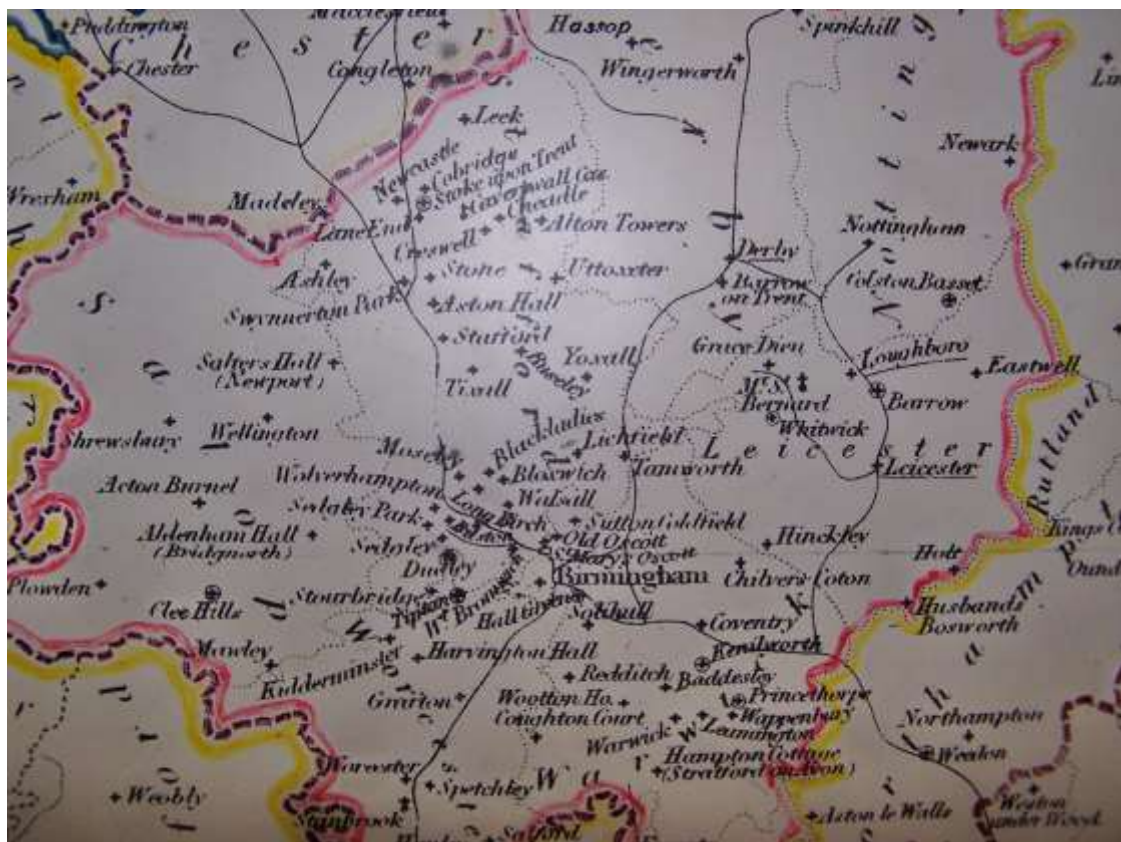 Puddington
Chester
Chester
Macclesfield
Congleton
Hassop
Wingerworth
Spinkhill
Leek
Newark
Wrexham
Madeley
Newcastle
Cobridge
Stoke upon Trent
Caverswall Cas.
Cheadle
Lane End
Creswell
Alton Towers
Derby
Nottingham
Ashley
Stone
Uttoxeter
Barrow
on Trent
Colston Basset
Swynnerton Park
Aston Hall
Stafford
Grace Dieu
Loughboro
Salters Hall
(Newport)
Tixall
Rugeley
Yoxall
Mt. St.
Bernard
Whitwick
Eastwell
Barrow
Shrewsbury
Wellington
Blackladies
Lichfield
Leicester
Rutland
Moseley
Bloxwich
Tamworth
Leicester
Acton Burnel
Wolverhampton
Long Birch
Walsall
Sedgley Park
Bilston
Sutton Coldfield
Aldenham Hall
(Bridgnorth)
Sedgley
Old Oscott
St. Mary's Oscott
Hinckley
Holt
Plowden
Dudley
Birmingham
Chilvers Coton
Clee Hills
Stourbridge
Tipton
Wt. Bromwich
Hall Green
Solihull
Coventry
Husbands
Bosworth
Mawley
Kidderminster
Harvington Hall
Kenilworth
Redditch
Baddesley
Grafton
Wootton Ho.
Coughton Court
Princethorpe
Wappenbury
Leamington
Warwick
Northampton
Hampton Cottage
(Stratford on Avon)
Weedon
Worcester
Spetchley
Weobly
Stanbrook
Salford
Aston le Walls
Weston
under Wood